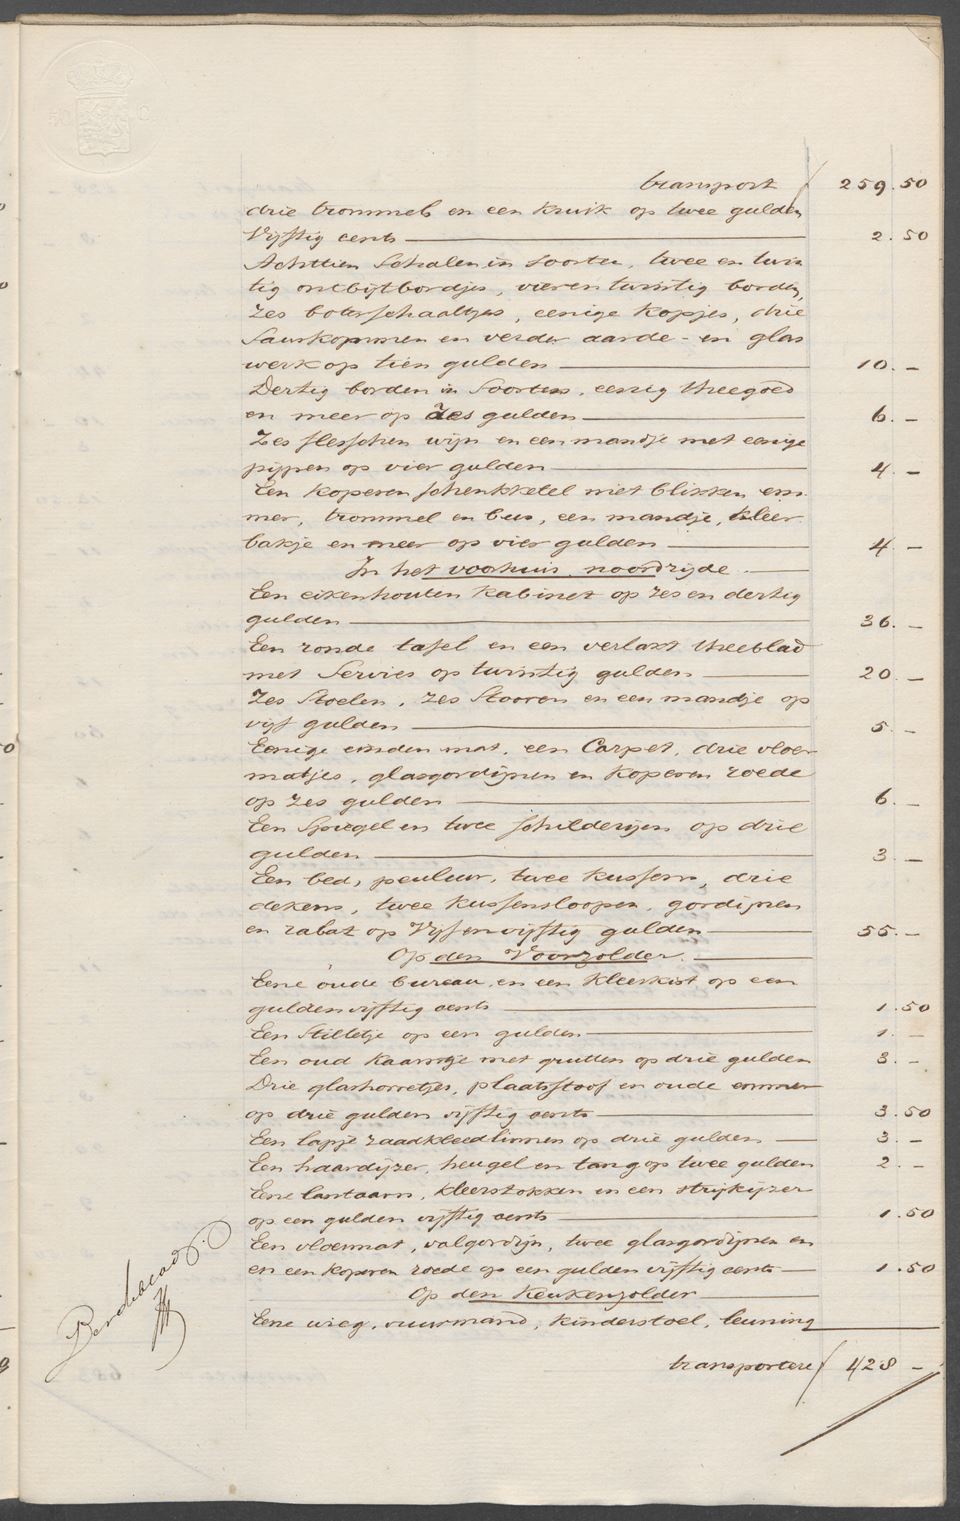 50 C.
transport / 259.50
drie trommels en een kruik op twee gulden
Vijftig cents — 2.50
Achttien Schalen in soorten, twee en twin
tig ontbijtbordjes, vierentwintig borden,
zes boterschaaltjes, eenige kopjes, drie
Sauskommen en verder aarde- en glas
werk op tien gulden — 10.-
Dertig borden in Soorten, eenig theegoed
en meer op zes gulden — 6.-
Zes flesschen wijn en een mandje met eenige
pijpen op vier gulden — 4.-
Een koperen schenkketel met blikken em
mer, trommel en bus, een mandje, kleer
bakje en meer op vier gulden — 4.-
In het voorhuis noordzijde. —
Een eikenhouten kabinet op zes en dertig
gulden — 36.-
Een ronde tafel en een verlakt theeblad
met Servies op twintig gulden — 20.-
Zes Stoelen, zes Stooven en een mandje op
vijf gulden — 5.-
Eenige einden mat, een Carpet, drie vloer
matjes, glasgordijnen en koperen roede
op zes gulden — 6.-
Een Spiegel en twee schilderijen op drie
gulden — 3.-
Een bed, peuluw, twee kussens, drie
dekens, twee kussensloopen, gordijnen
en rabat op Vijfenvijftig gulden — 55.-
Op den Voorzolder. —
Eene oude bureau, en een kleerkist op een
gulden vijftig cents — 1.50
Een Stilletje op een gulden — 1.-
Een oud kaamtje met grutten op drie gulden 3.-
Drie glashorretjes, plaatstoof en oude emmer
op drie gulden vijftig cents — 3.50
Een lapje zaadkleedlinnen op drie gulden — 3.-
Een haardijzer, heugel en tang op twee gulden 2.-
Eene lantaarn, kleerstokken en een strijkijzer
op een gulden vijftig cents — 1.50
Een vloermat, valgordijn, twee glasgordijnen en
en een koperen roede op een gulden vijftig cents — 1.50
Op den Keukenzolder —
Eene wieg, vuurmand, kinderstoel, leuning
transportere / 428 -